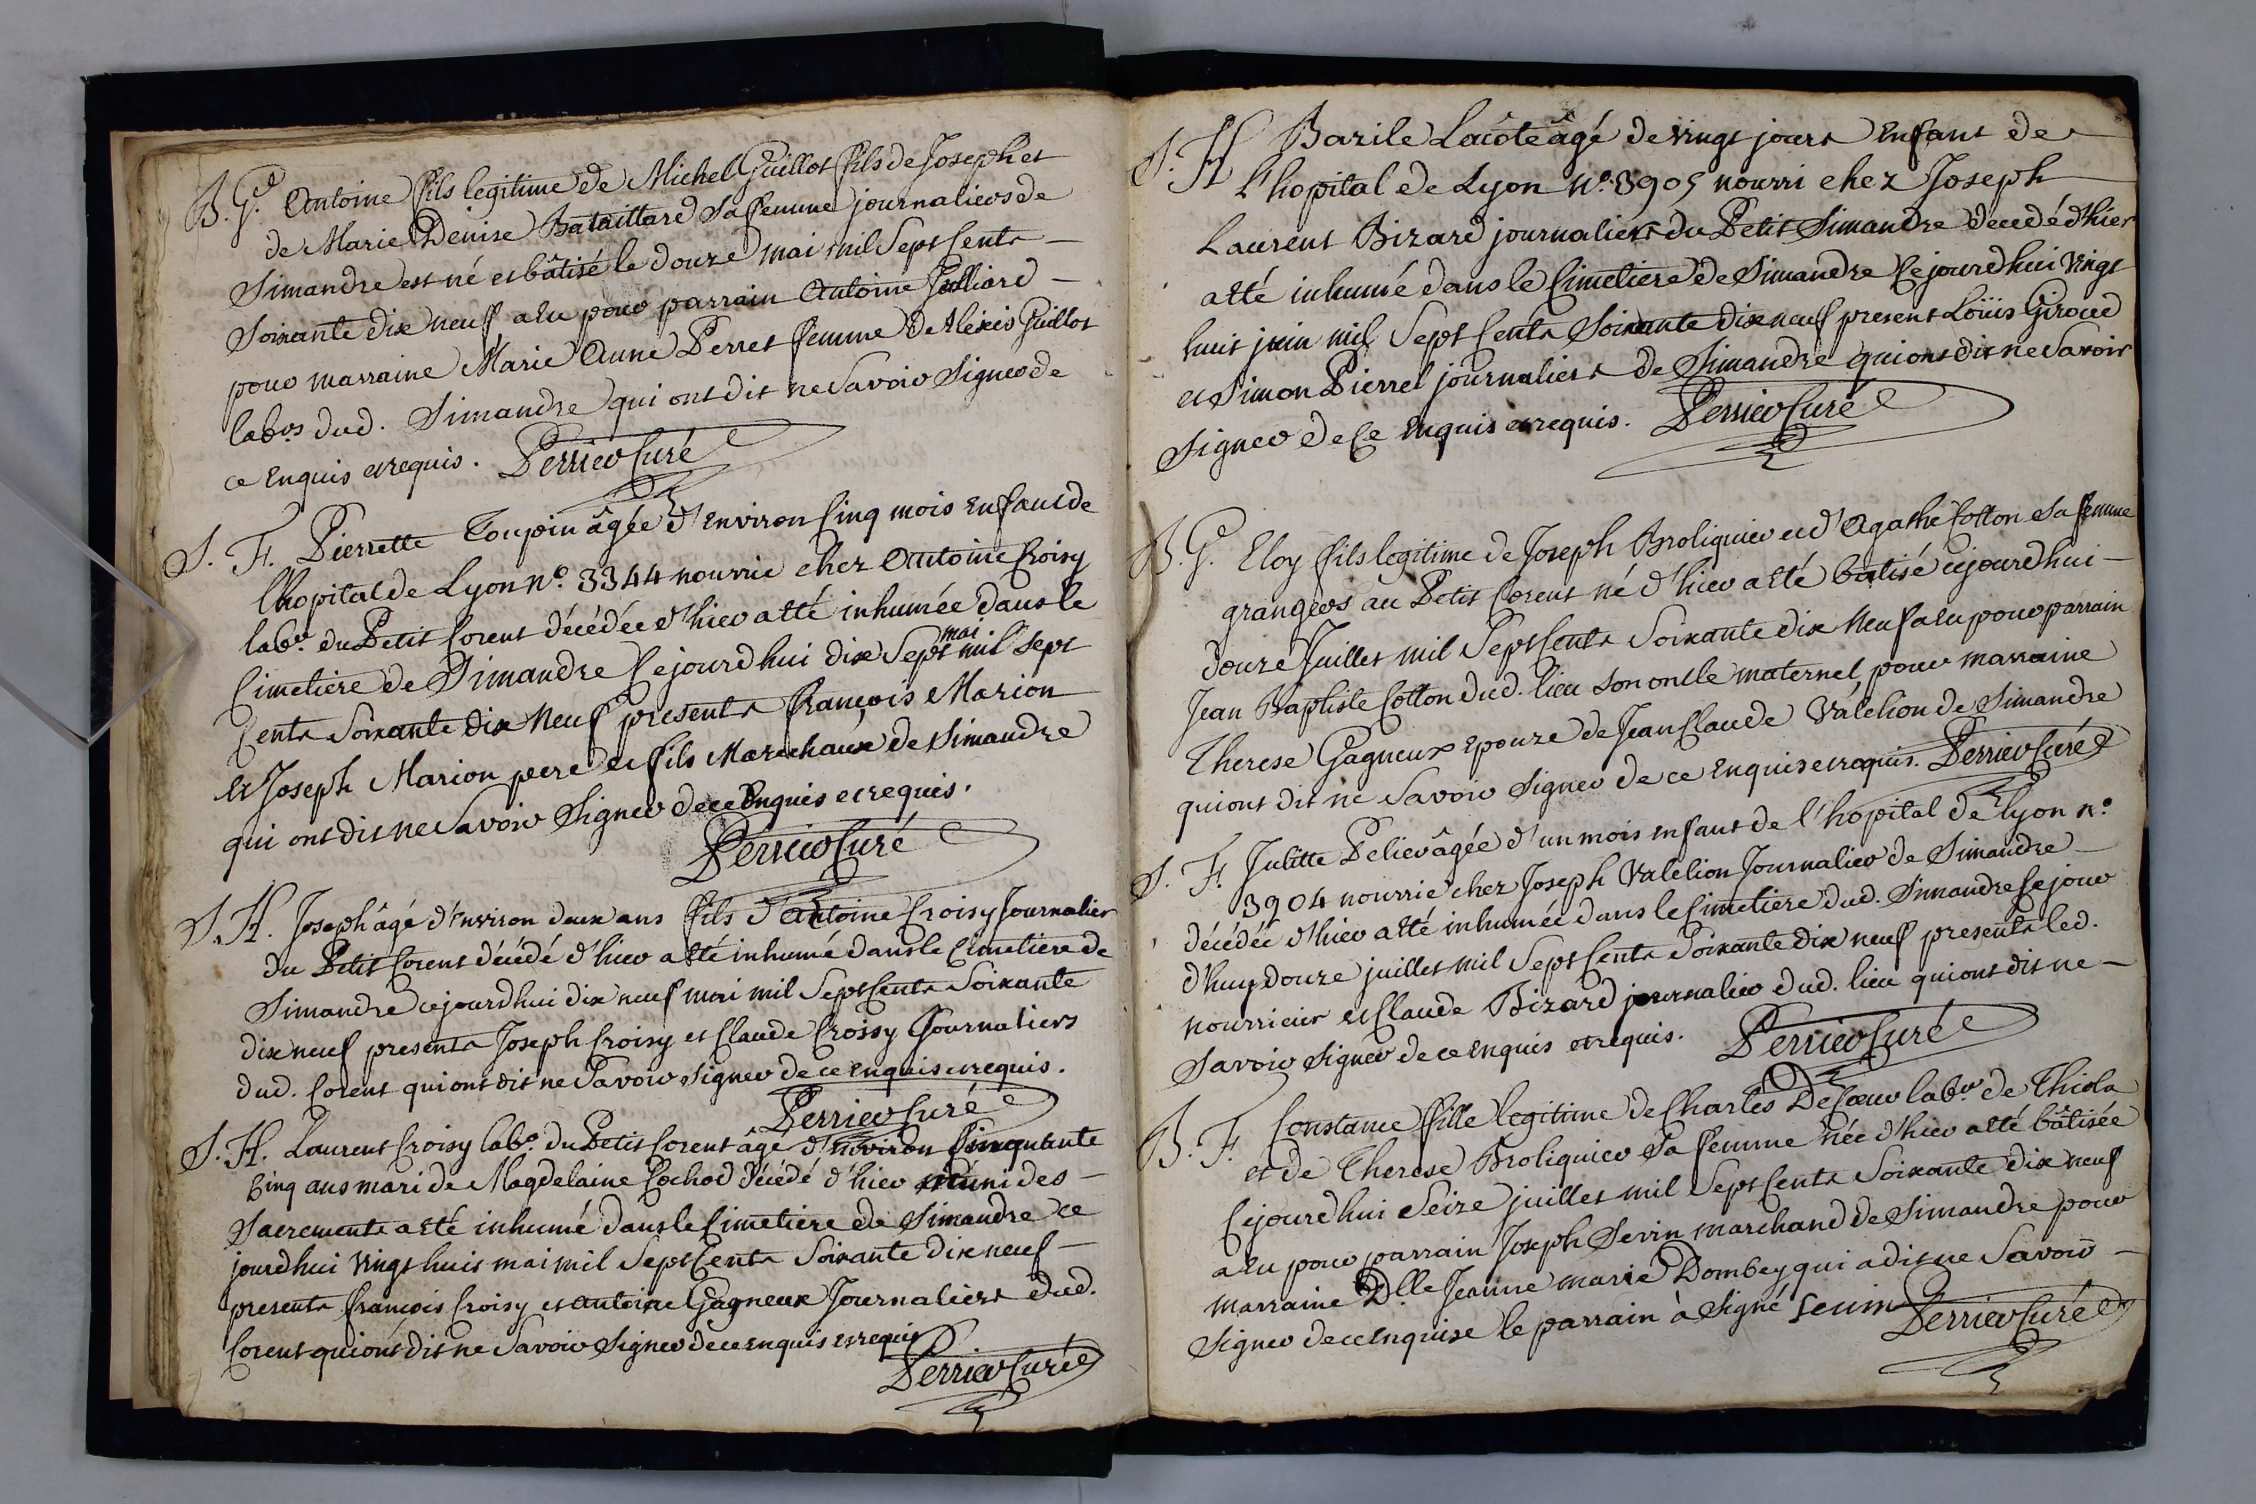 B. G. Antoine fils legitime de Michel Guillot fils de Joseph et
de Marie Denise Bataillard sa femme journaliers de
Simandre est né et bâtisé le douze mai mil Sept Cents
Soixante dix neuf a eu pour parrain Antoine Julliard
pour marraine Marie Anne Perret femme de Alexis Guillot
labrs dud. Simandre qui ont dit ne Savoir Signer de
ce enquis et requis. Perrier Curé
S. F. Pierrette Toupin âgée d'environ Cinq mois enfant de
l'hopital de Lyon n°. 3344 nourrie chez Antoine Croisy
labr. du Petit Corent décédée d'hier a eté inhumée dans le
Cimetiere de Simandre Cejourdhui dix Sept mai mil Sept
Cents Soixante dix Neuf presents François Marion
et Joseph Marion pere et fils Marechaux de Simandre
qui ont dit ne Savoir Signer de ce Enquis et requis.
Perrier Curé
S. H. Joseph âgé d'environ deux ans fils d'Antoine Croisy Journalier
du Petit Corent décédé d'hier a eté inhumé dans le Cimetiere de
Simandre cejourdhui dix neuf mai mil Sept Cents Soixante
dix neuf presents Joseph Croisy et Claude Croisy Journaliers
dud. Corent qui ont dit ne Savoir Signer de ce enquis et requis.
Perrier Curé
S. H. Laurent Croisy labr. du Petit Corent âgé d'environ Cinquante
Cinq ans mari de Magdelaine Cochod décédé d'hier muni des
Sacrements a eté inhumé dans le Cimetiere de Simandre ce
jourdhui vingt huit mai mil Sept Cents Soixante dix neuf
presents François Croisy et Antoine Gagneux Journaliers dud.
Corent qui ont dit ne Savoir Signer de ce enquis et requis
Perrier Curé
S. H Bazile Lacôte âgé de vingt jours enfant de
l'hopital de Lyon N°. 3905 nourri chez Joseph
Laurent Bizard journaliers du Petit Simandre decedé d'hier
a eté inhumé dans le Cimetiere de Simandre Cejourdhui vingt
huit juin mil Sept Cents Soixante dix neuf present Loüis Giroud
et Simon Pierrel journaliers de Simandre qui ont dit ne Savoir
Signer de Ce enquis et requis. Perrier Curé
B. G. Eloy fils legitime de Joseph Broliquier et d'Agathe Cotton Sa femme
grangers au Petit Corent né d'hier a eté batisé cejourdhui
douze Juillet mil Sept Cents Soixante dix Neuf a eu pour parrain
Jean Baptiste Cotton dud. lieu Son oncle maternel, pour marraine
Therese Gagneux epouze de Jean Claude Valelion de Simandre
qui ont dit ne Savoir Signer de ce enquis et requis. Perrier Curé
S. F. Julitte Pelier âgée d'un mois enfant de l'hopital de Lyon n°.
3904 nourrie chez Joseph Valelion Journalier de Simandre
décédée d'hier a eté inhumée dans le Cimetiere dud. Simandre Cejour
d'huy douze juillet mil Sept Cents Soixante dix neuf presents led.
nourricier et Claude Bizard journalier dud. lieu qui ont dit ne
Savoir Signer de ce enquis et requis. Perrier Curé
B. F. Constance fille legitime de Charles DeCoeur labr. de Thiola
et de Therese Broliquier Sa femme née d'hier a eté bâtisée
Cejourdhui Seize juillet mil Sept Cents Soixante dix neuf
a eu pour parrain Joseph Sevin marchand de Simandre pour
marraine Dlle Jeanne marie Dombey qui a dit ne Savoir
Signer de ce enquise le parrain à Signé Seuin Perrier Curé